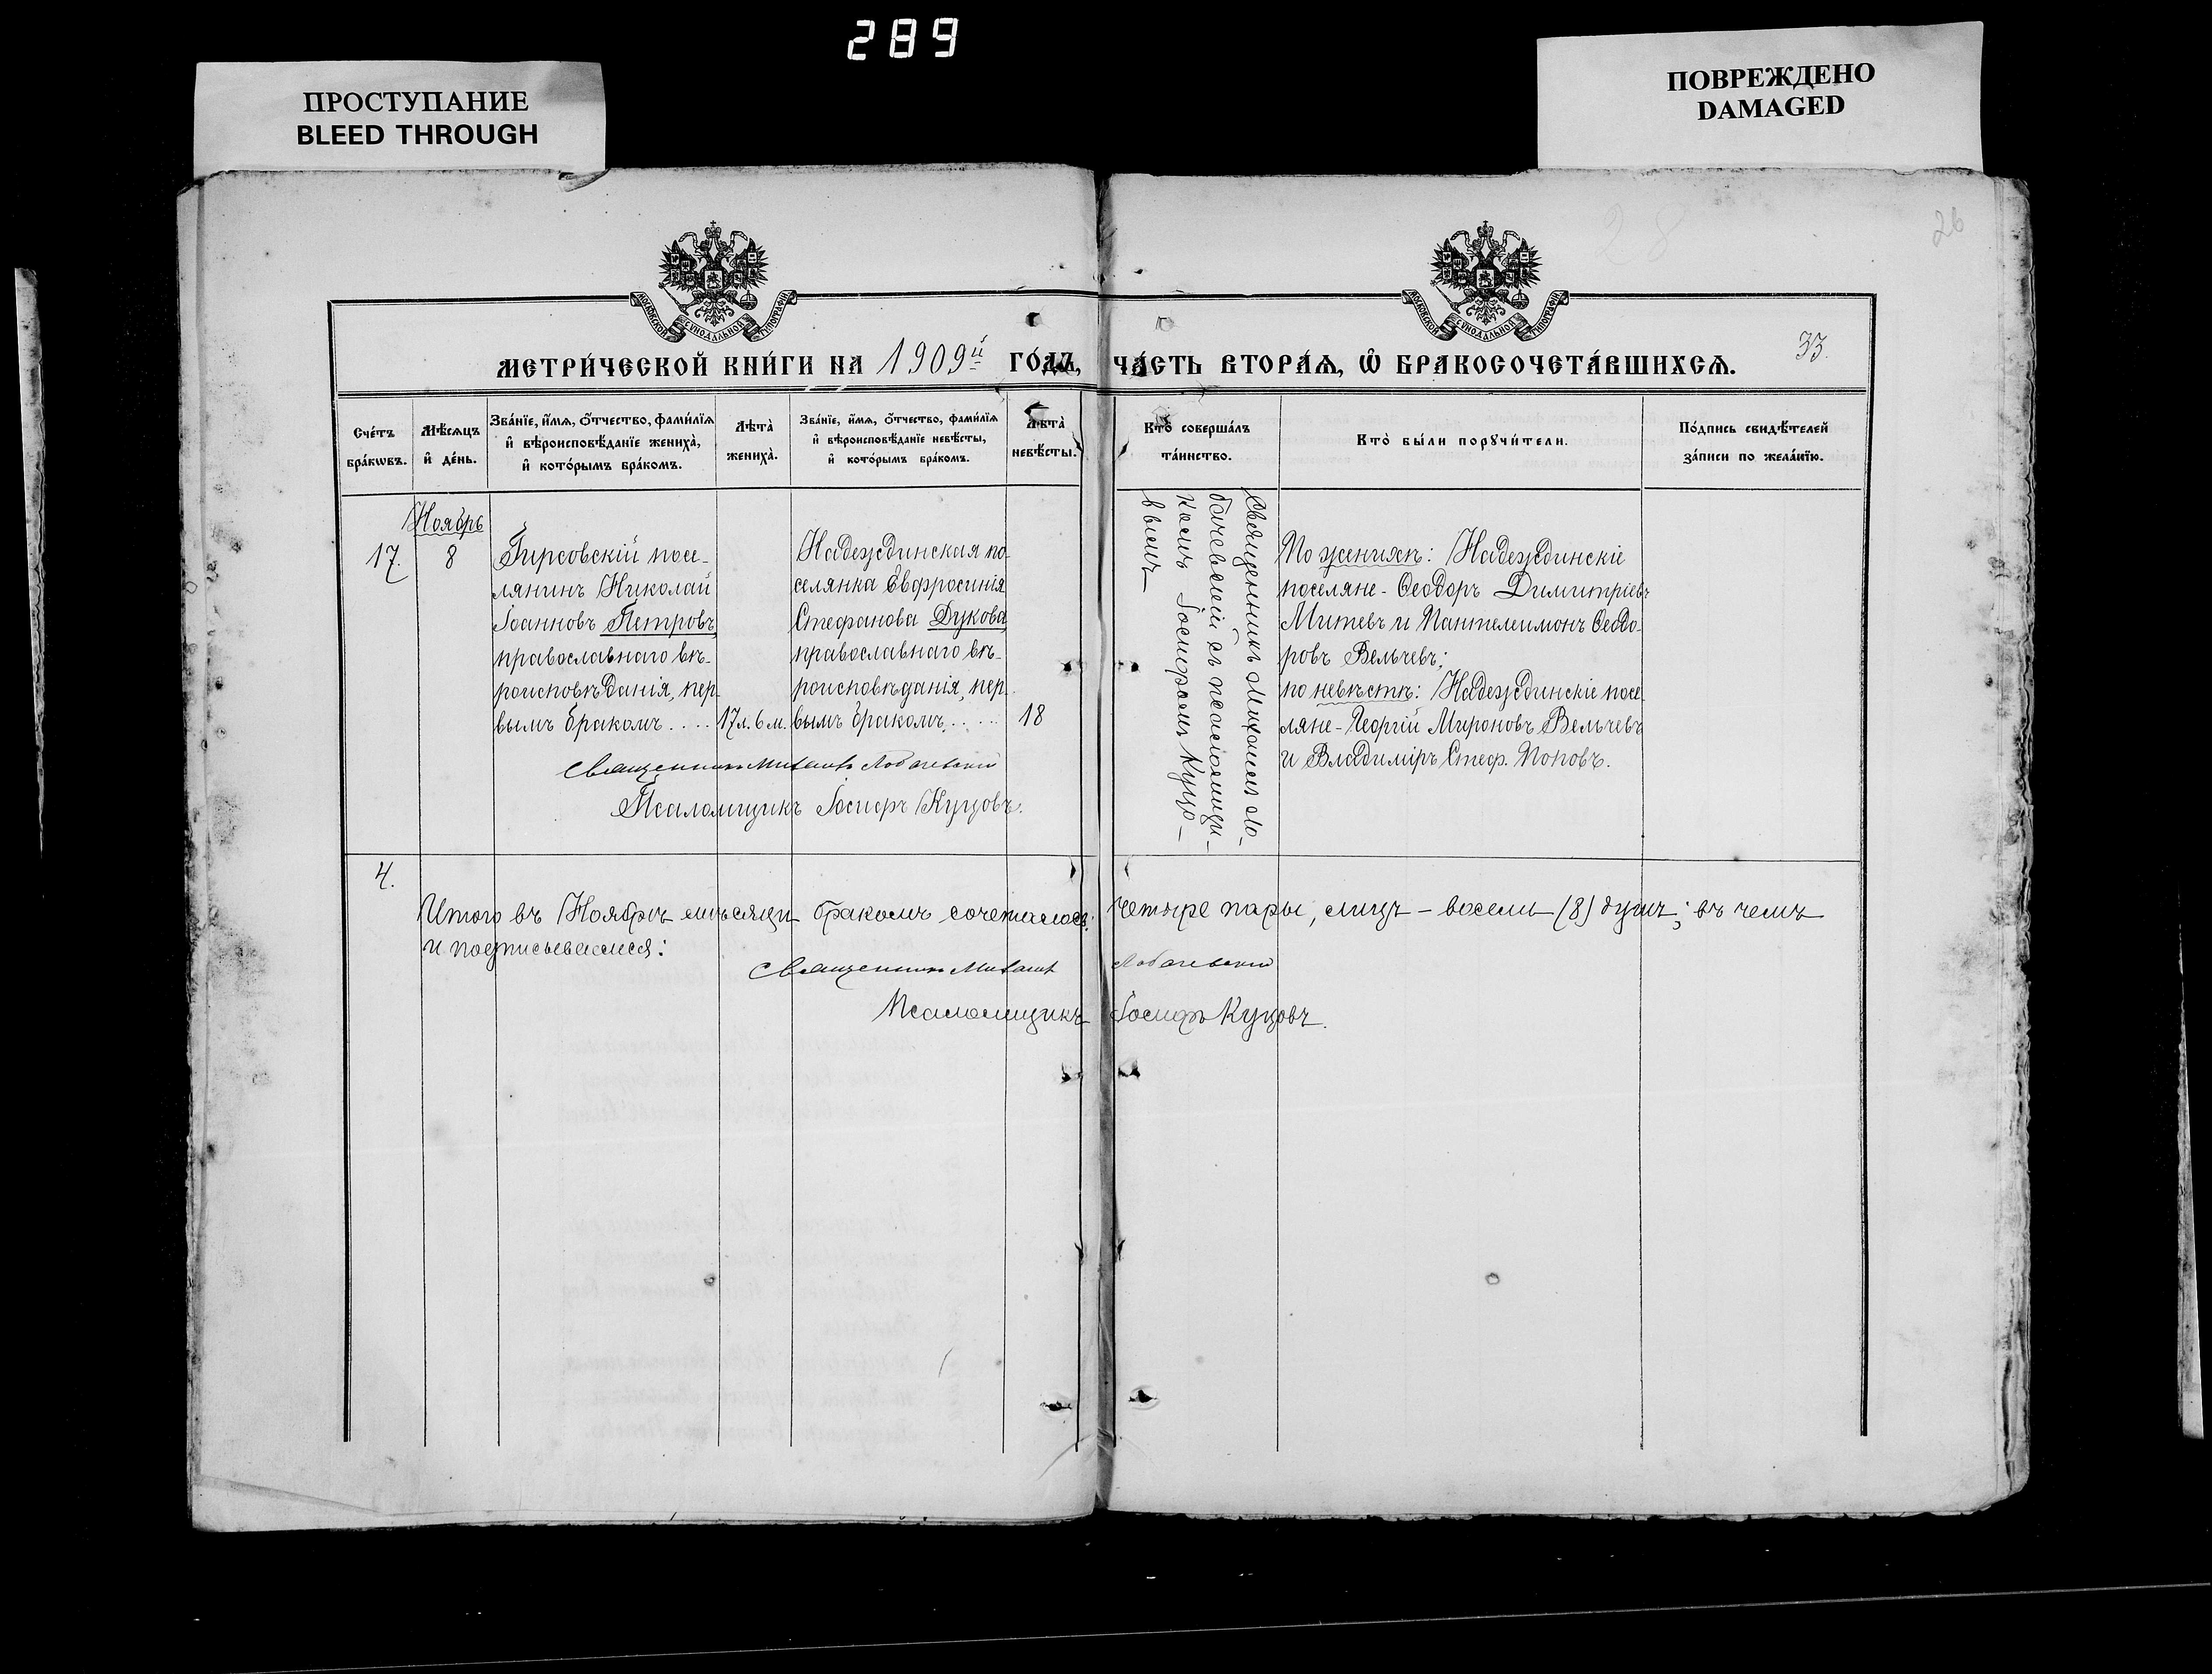 289
ПРОСТУПАНИЕ
BLEED THROUGH
ПОВРЕЖДЕНО
DAMAGED
28
26
МОСКОВСКОЙ СѴНОДАЛЬНОЙ ТИПОГРАФІИ
МОСКОВСКОЙ СѴНОДАЛЬНОЙ ТИПОГРАФІИ
33.
МЕТРИ́ЧЕСКОЙ КНИ́ГИ НА 1909й ГО́ДЪ, ЧА́СТЬ ВТОРА́Ѧ, Ѡ҆ БРАКОСОЧЕТА́ВШИХСѦ.
Сче́тъ
бра́кѡвъ.
Мѣ́сѧцъ
и҆ де́нь.
Зва́нїе, и҆́мѧ, ѻ҆́тчество, фами́лїѧ
и҆ вѣроисповѣ́данїе жениха̀,
и҆ кото́рымъ бра́комъ.
Лѣта̀
жениха̀.
Зва́нїе, и҆́мѧ, ѻ҆́тчество, фами́лїѧ
и҆ вѣроисповѣ́данїе невѣ́сты,
и҆ кото́рымъ бра́комъ.
Лѣта̀
невѣ́сты.
Кто̀ соверша́лъ
та́инство.
Кто̀ бы́ли порꙋчи́тели.
По́дпись свидѣ́телей
за́писи по жела́нїю.
Ноябрь
17.
8
Гирсовскій посе-
лянинъ Николай
Іоанновъ Петровъ,
православнаго вѣ-
роисповѣданія, пер-
вымъ бракомъ....
17л. 6м.
Надеждинская по-
селянка Евфросинія
Стефанова Дукова,
православнаго вѣ-
роисповѣданія, пер-
вымъ бракомъ....
18
Священникъ Михаилъ Ло-
бачевскій съ псаломщи-
комъ Іосифомъ Куцо-
вымъ
По женихѣ: Надеждинскіе
поселяне - Ѳеодоръ Димитріевъ
Митевъ и Пантелимонъ Ѳеодо-
ровъ Вельчевъ;
по невѣстѣ: Надеждинскіе посе-
ляне - Георгій Мироновъ Вельчевъ
и Владиміръ Стеф. Поповъ.
Священникъ Михаилъ Лобачевскій
Псаломщикъ Іосифъ Куцовъ.
4.
Итого въ Ноябрѣ мѣсяцѣ бракомъ сочеталось: четыре пары, лицъ - восемь (8) душъ; въ чемъ
и подписываемся:
Священникъ Михаилъ Лобачевскій
Псаломщикъ Іосифъ Куцовъ.